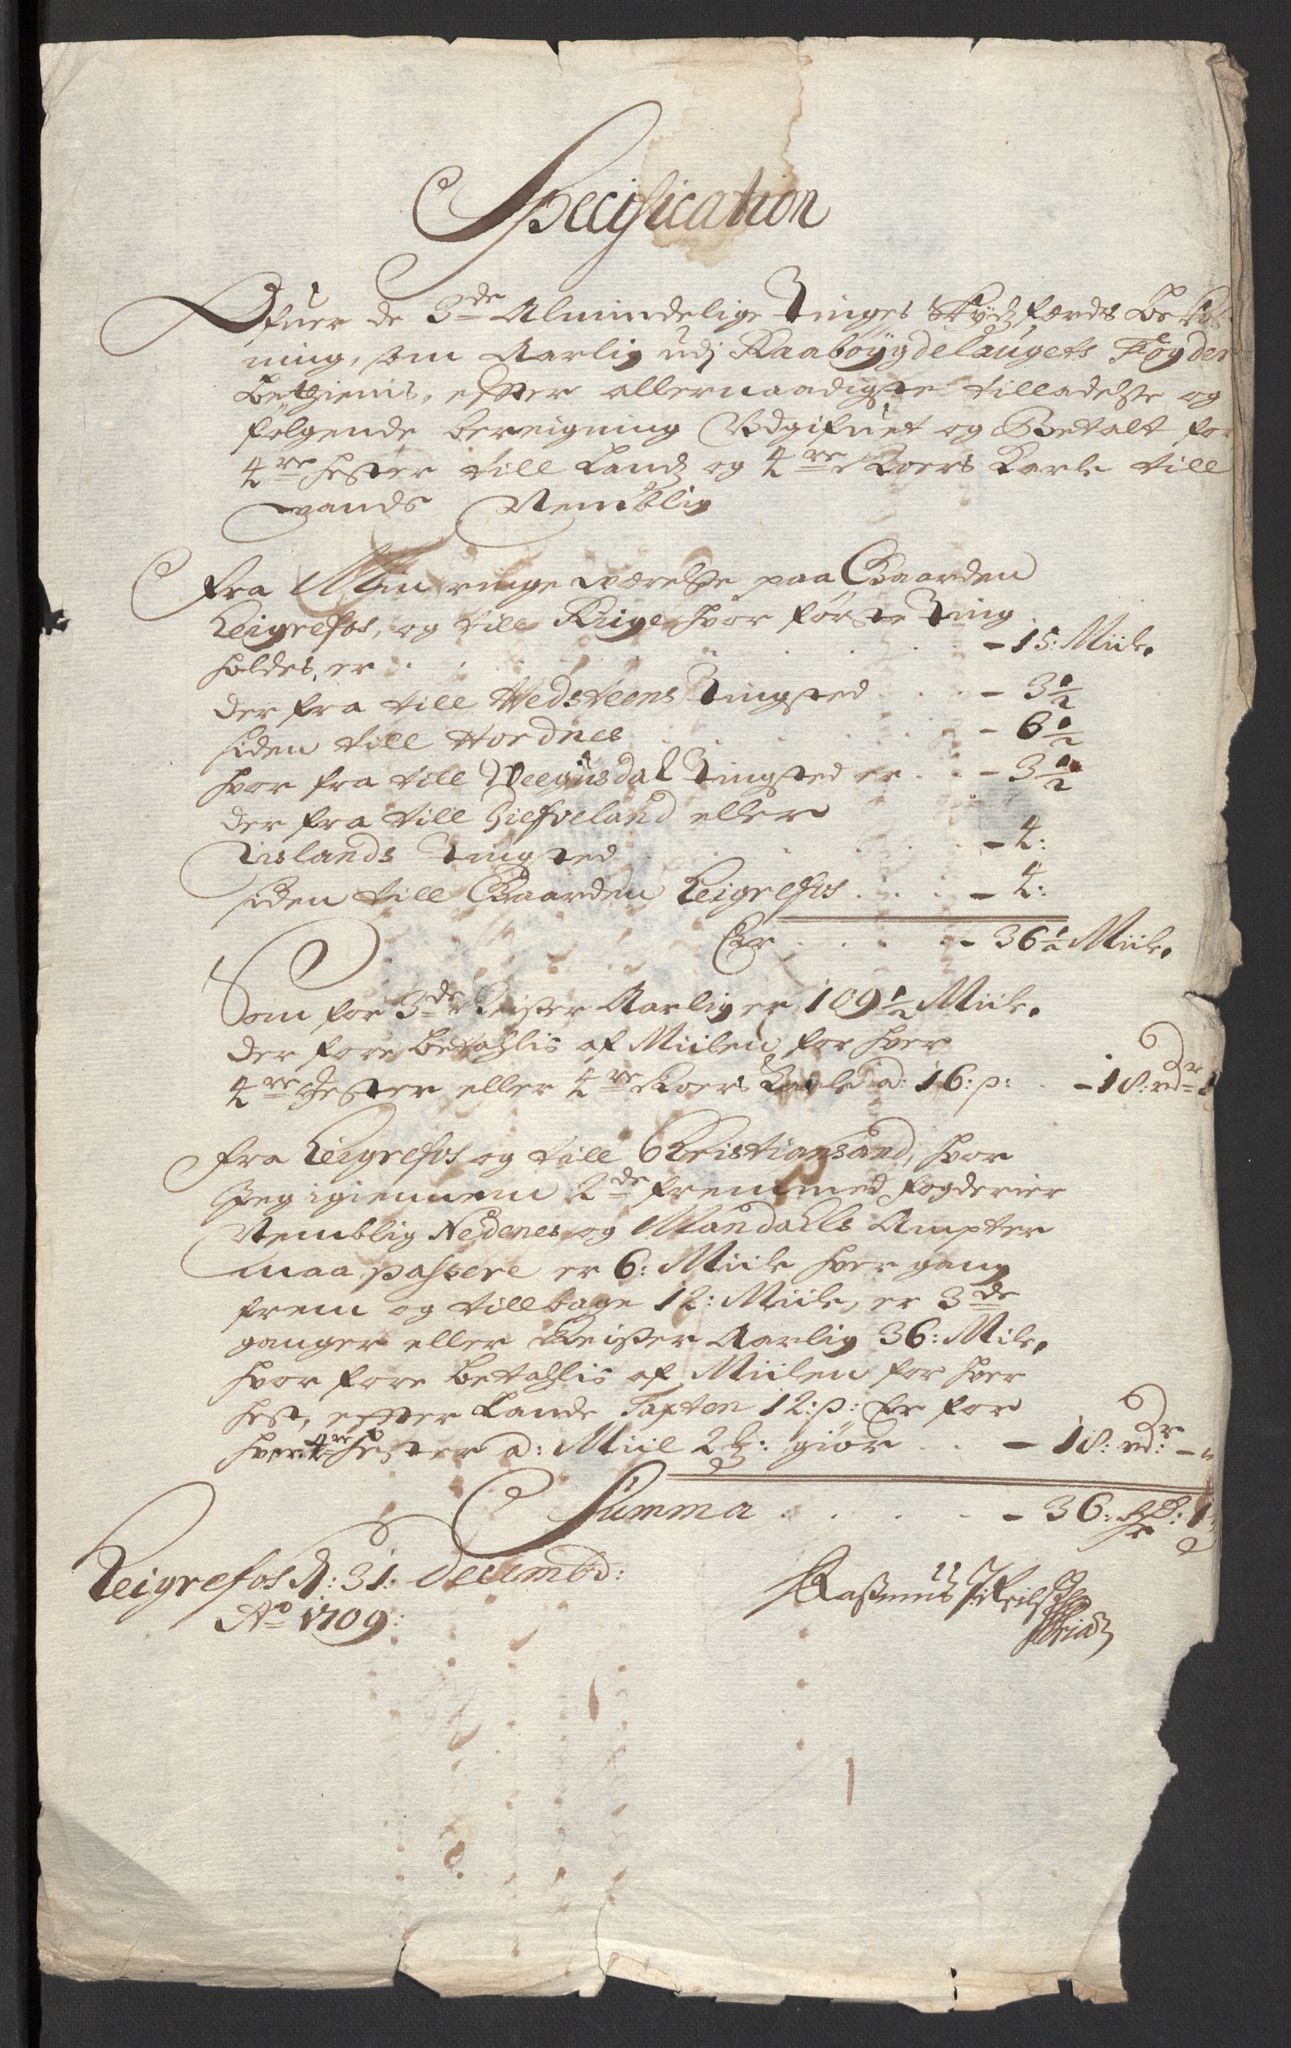 Specification
Ofuer de 3de Almindelige Tinges Skydsfærds Bekost
ning, som Aarlig udj Raabøygdelaugets Fogderie
betienis, efter allernaadigste tilladelse og
følgende bereigning Udgifuet og Betalt for
4re hester till Landz og 4re Roers Karle till
vands Nemblig
Fra Min ringe værelse paa Gaarden
Reigrefos, og till Riige hvor første Ting
holdes, er . . . . - 15: Miile.
der fra till Hedsteens Tingsted . . - 3 1/2
siden till Hordnes . . . . - 6 1/2
hvor fra till Veegusdal Tingsted er . . - 3 1/2
der fra till Giefveland eller
Tislands Tingsted . . . . - 4:
siden till Gaarden Reigrefos . . . - 4:
Er . . . . - 36 1/2 Miile.
Som for 3de Reiser Aarlig er 109 1/2 Miile.
der fore betahlis af Miilen for hver
4re Hester eller 4re Roers Karle a: 16: s: . . - 18: rdr 1
Fra Reigrefos og till Christiansand, hvor
Jeg igiennem 2de fremmed fogderier
Nemblig Nedenes og Mandaels Ampter
maa passere er 6: Miile hver gang
frem og tillbage 12: Miile, er 3de
ganger eller Reiser Aarlig 36: Mile.
hvor fore betahlis af Miilen for hver
hest, efter Lands Taxten 12: s: Er for
hver 4re hester a: Miil 2 giør . . - 18: rdr: -
Summa . . . . - 36: Rd: 1
Reigrefos d: 31: decembr:
Ao 1709:
Rasmus